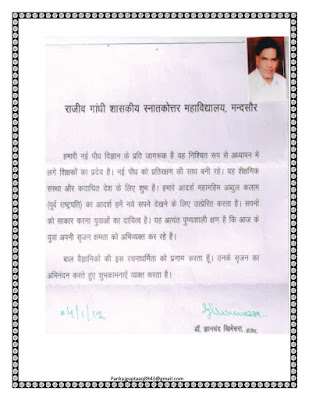 राजीव गांधी शासकीय स्नातकोत्तर महाविद्यालय, मन्दसौर
हमारी नई पौध विज्ञान के प्रति जागरूक है यह निश्चित रूप से अध्यापन में
लगे शिक्षकों का प्रदेय है। नई पौध को प्रतिरक्षण की साध बनी रहे। यह शैक्षणिक
संस्था और कदाचित देश के लिए शुभ है। हमारे आदर्श महामहिम अब्दुल कलाम
(पूर्व राष्ट्रपति) का आदर्श हमें नये सपने देखने के लिए उत्प्रेरित करता है। सपनों
को साकार करना युवाओं का दायित्व है। यह अत्यंत पुण्यशाली क्षण है कि आज के
युवा अपनी सृजन क्षमता को अभिव्यक्त कर रहे है।
बाल वैज्ञानिकों की इस रचनाधर्मिता को प्रणाम करता हूँ। उनके सृजन का
अभिनंदन करते हुए शुभकामनाएँ व्यक्त करता है।
04/1/12
डॉ. ज्ञानचंद खिमेसरा,
Pankajguptaaq8943@gmail.com